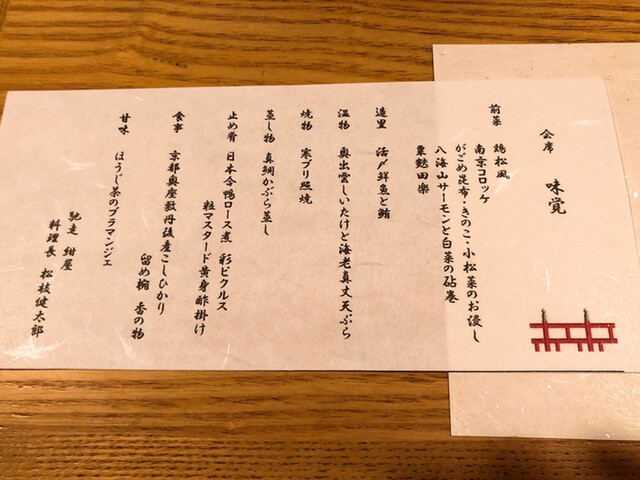 会席 味覚
前菜 鶏松風
南京コロッケ
がごめ昆布・きのこ・小松菜のお浸し
八海山サーモンと白菜の砧巻
粟麩田楽
造里 活〆鮮魚と鮪
温物 奥出雲しいたけと海老真丈天ぷら
焼物 寒ブリ照焼
蒸し物 真鯛かぶら蒸し
止め肴 日本合鴨ロース煮 彩ピクルス
粒マスタード黄身酢掛け
食事 京都奥座敷丹後産こしひかり
留め椀 香の物
甘味 ほうじ茶のブラマンジェ
馳走 紺屋
料理長 松枝健太郎